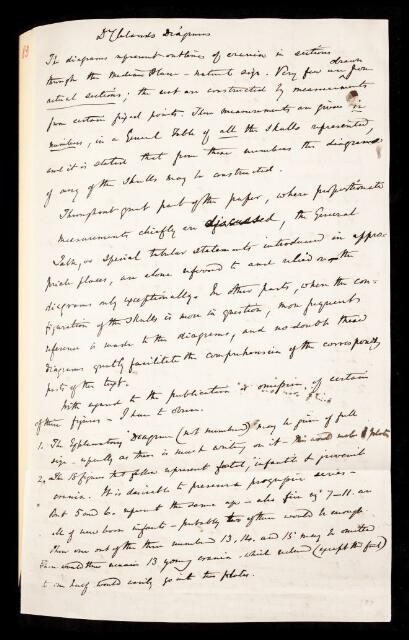 Dr Cleland's Diagrams
The diagrams represent outlines of crania in sections
through the median plane – natural size. Very few are drawn from
actual sections; the rest are constructed by measurements
from certain fixed points. These measurements are given in
numbers, in a General Table of all the skulls represented,
and it is stated that from these numbers the diagrams
of any of the skulls may be constructed.
Throughout great part of the paper, where proportionate
measurements chiefly are discussed, the General
Table, or special tabular statements introduced in appro-
priate places, are alone referred to and relied on – the
diagrams only exceptionally. In other parts, when the con-
figuration of the skulls is more in question, more frequent
reference is made to the diagrams, and no doubt these
diagrams greatly facilitate the comprehension of the corresponding
parts of the text.
With regard to the publication & omission of certain
of these figures – I have to observe.
1. The Explanatory Diagram (not numbered) may be given of full
size – especially as there is much writing on it – this would make 1 plate
2. The 15 figures that follow represent foetal, infantile & juvenile
crania. It is desirable to preserve a progressive series –
but 5 and 6 represent the same age – also five viz 7–11 are
all of new born infants – probably two of them would be enough.
Then one out of the three numbered 13, 14, and 15 may be omitted
There would then remain 13 young crania which reduced (except the first)
to one half would easily go into two plates.